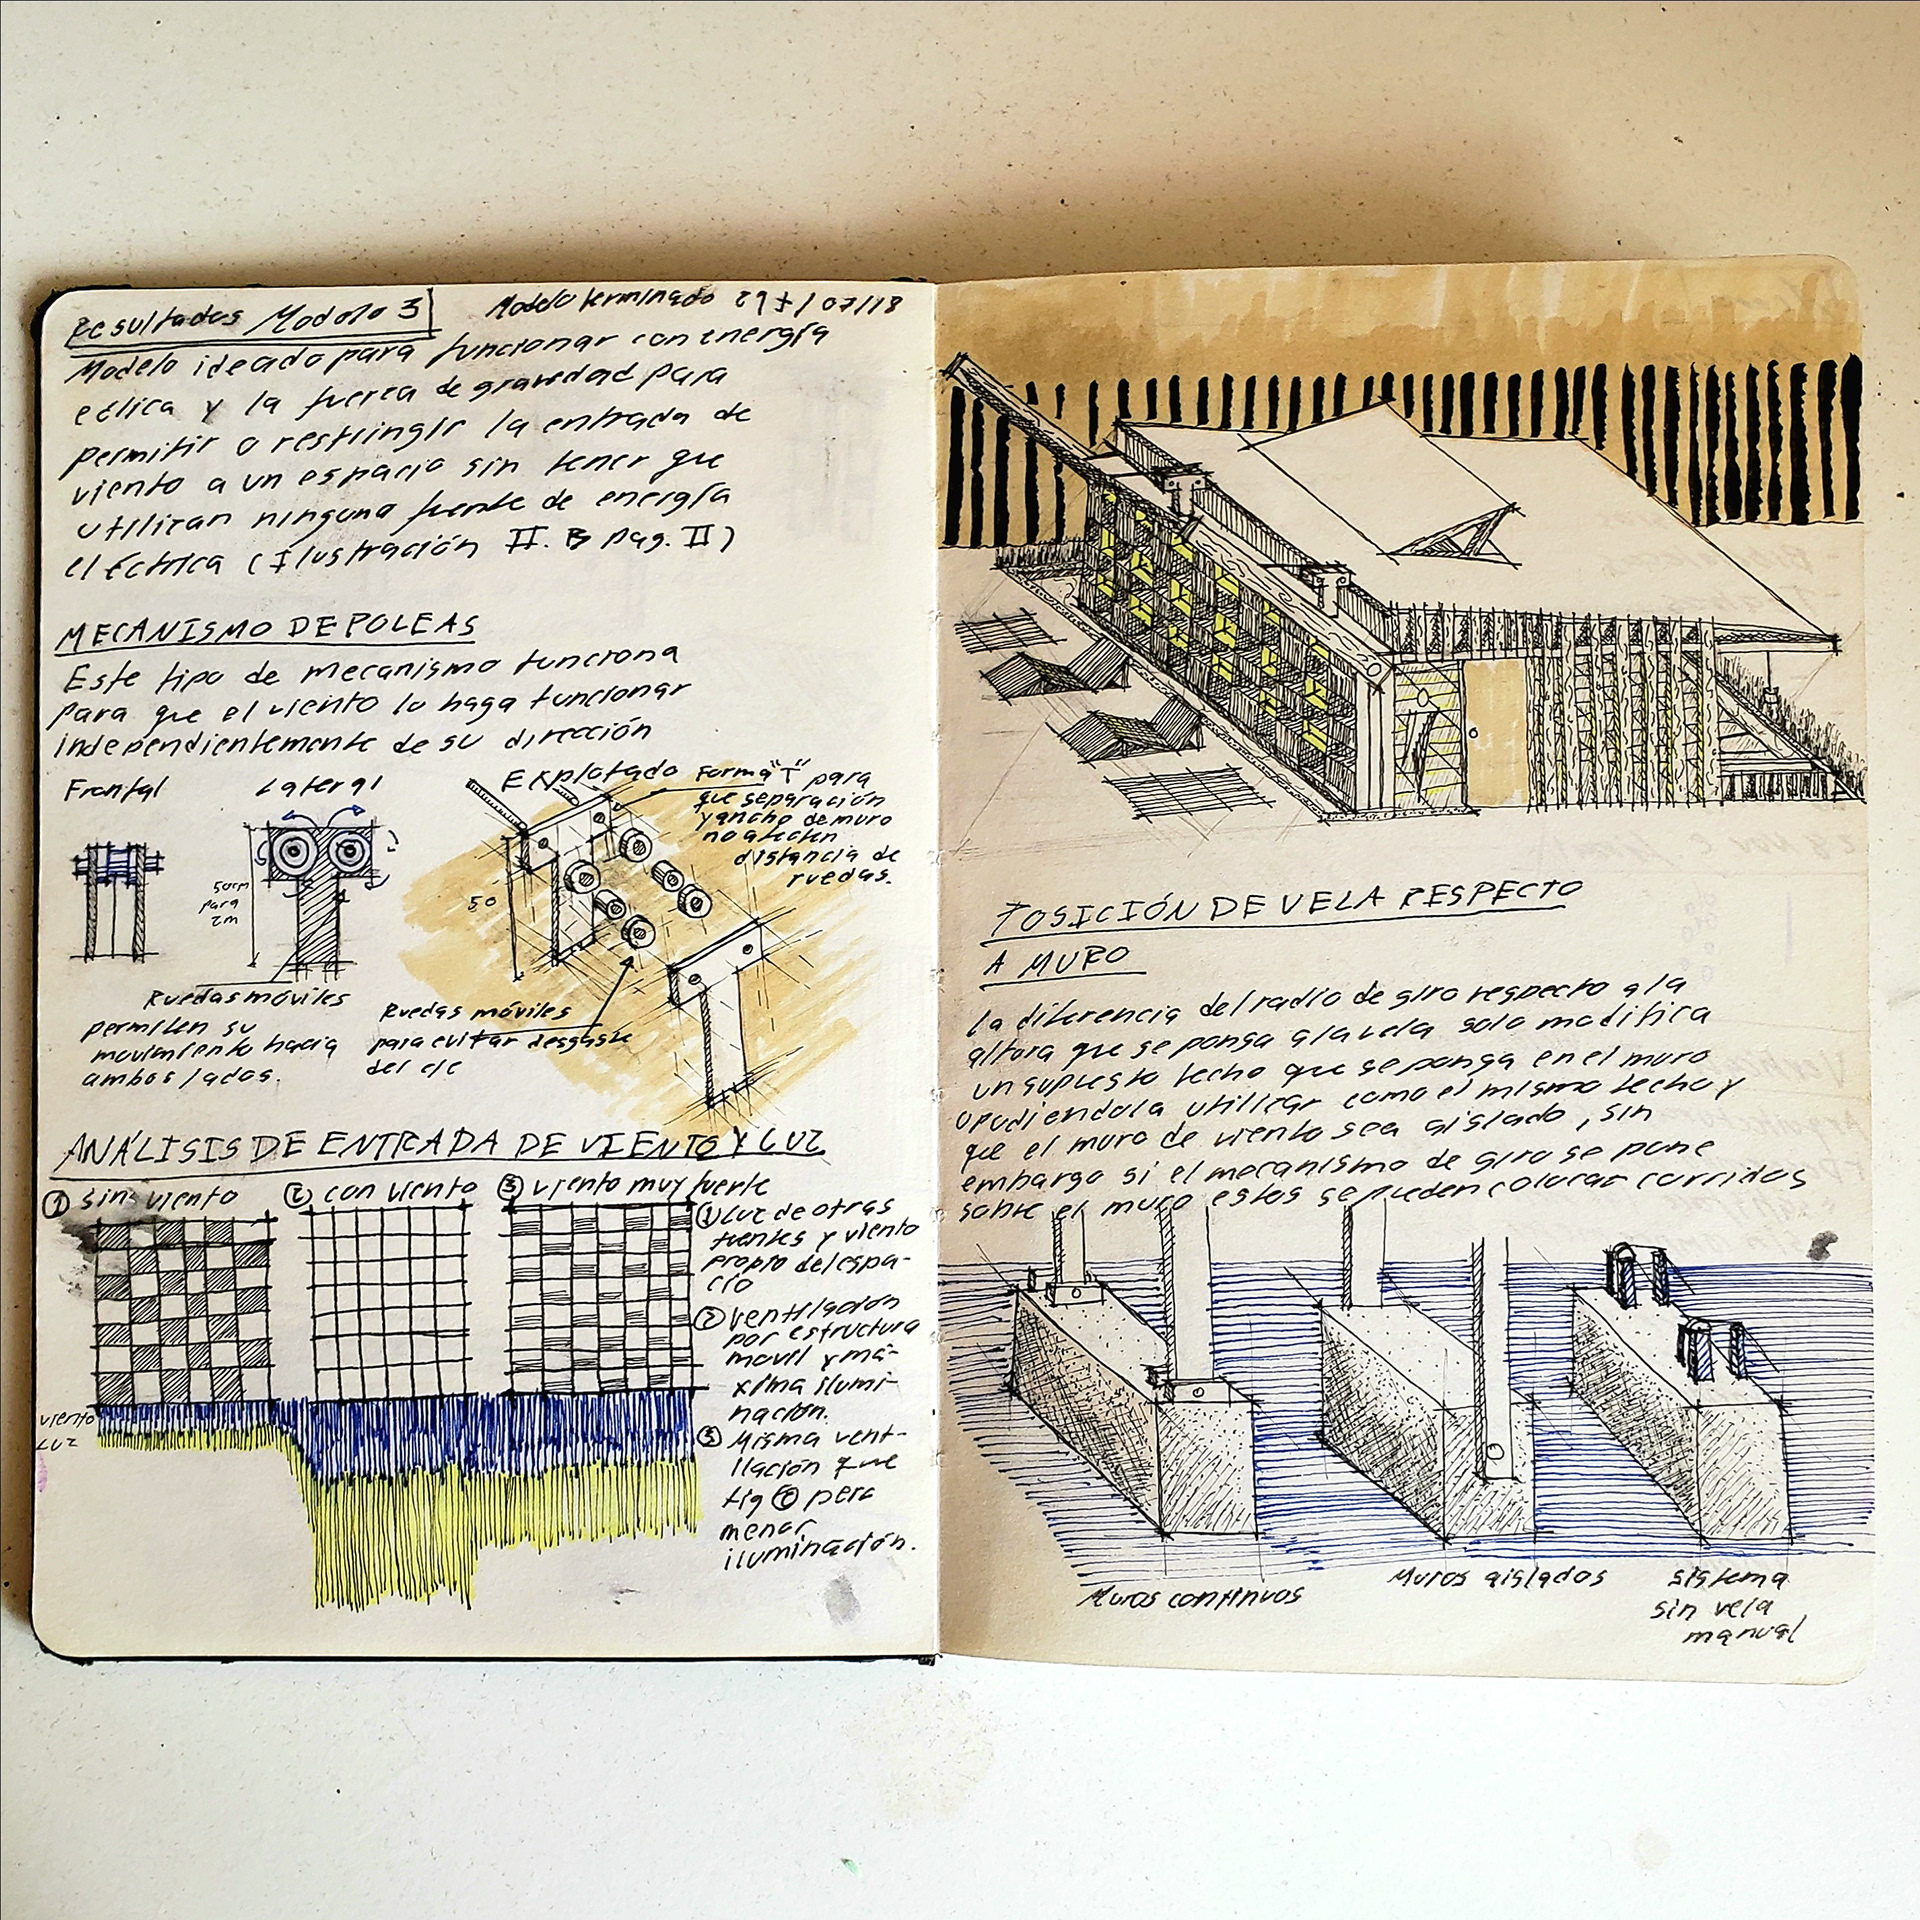 Resultados Modelo 3
Modelo terminado 29 / 07/18
Modelo ideado para funcionar con energía
eólica y la fuerza de gravedad para
permitir o restringir la entrada de
viento a un espacio sin tener que
utilizar ninguna fuente de energía
eléctrica (Ilustración II. B pag. II)
MECANISMO DE POLEAS
Este tipo de mecanismo funciona
para que el viento lo haga funcionar
independientemente de su dirección
Frontal
Lateral
Explotado
Forma "T" para
que separación
y ancho de muro
no afecten
distancia de
ruedas.
50cm
para
2m
50
Ruedas móviles
permiten su
movimiento hacia
ambos lados.
Ruedas móviles
para evitar desgaste
del eje
ANÁLISIS DE ENTRADA DE VIENTO Y LUZ
① sin viento
② con viento
③ viento muy fuerte
① Luz de otras
fuentes y viento
propio del espa-
cio
② Ventilación
por estructura
movil y má-
xima ilumi-
nación.
③ Misma vent-
ilación que
fig ② pero
menor
iluminación.
viento
LUZ
POSICIÓN DE VELA RESPECTO
A MURO
La diferencia del radio de giro respecto a la
altura que se ponga a la vela solo modifica
un supuesto techo que se ponga en el muro
o pudiendola utilizar como el mismo techo y
que el muro de viento sea aislado, sin
embargo si el mecanismo de giro se pone
sobre el muro estos se pueden colocar corridos
Muros continuos
Muros aislados
sistema
sin vela
manual